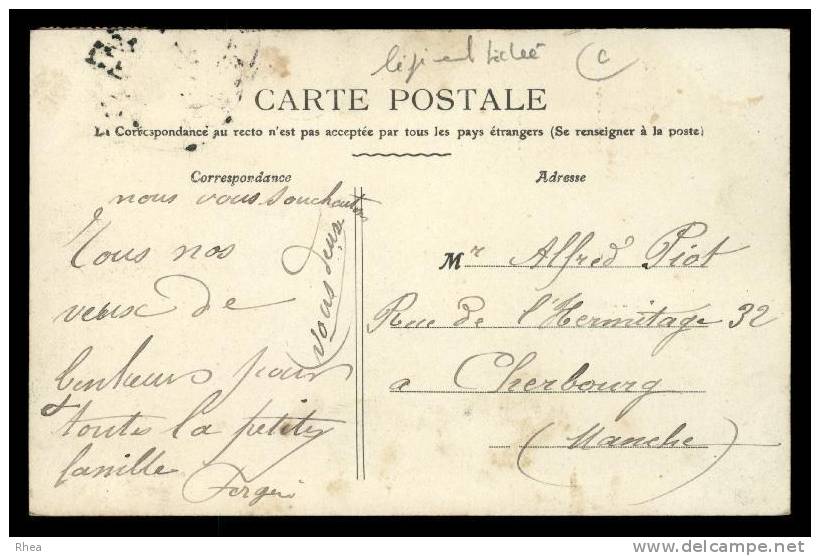 CARTE POSTALE
La Correspondance au recto n'est pas acceptée par tous les pays étrangers (Se renseigner à la poste)
Correspondance
Adresse
nous vous souchauton
Tous nos
veux de
bonheurs pour
toute la petite
famille
vous deux
Mr Alfred Piot
Rue de l'Hermitage 32
a Cherbourg
(Manche)
Rhea
www.delcampe.net